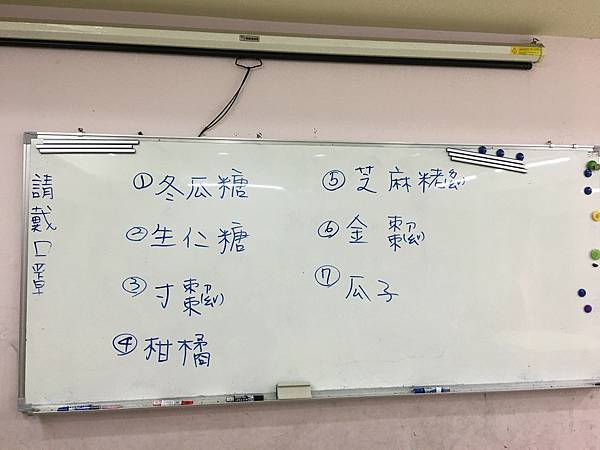 請戴口罩
①冬瓜糖
②生仁糖
③寸棗
④柑橘
⑤芝麻粩
⑥金棗
⑦瓜子